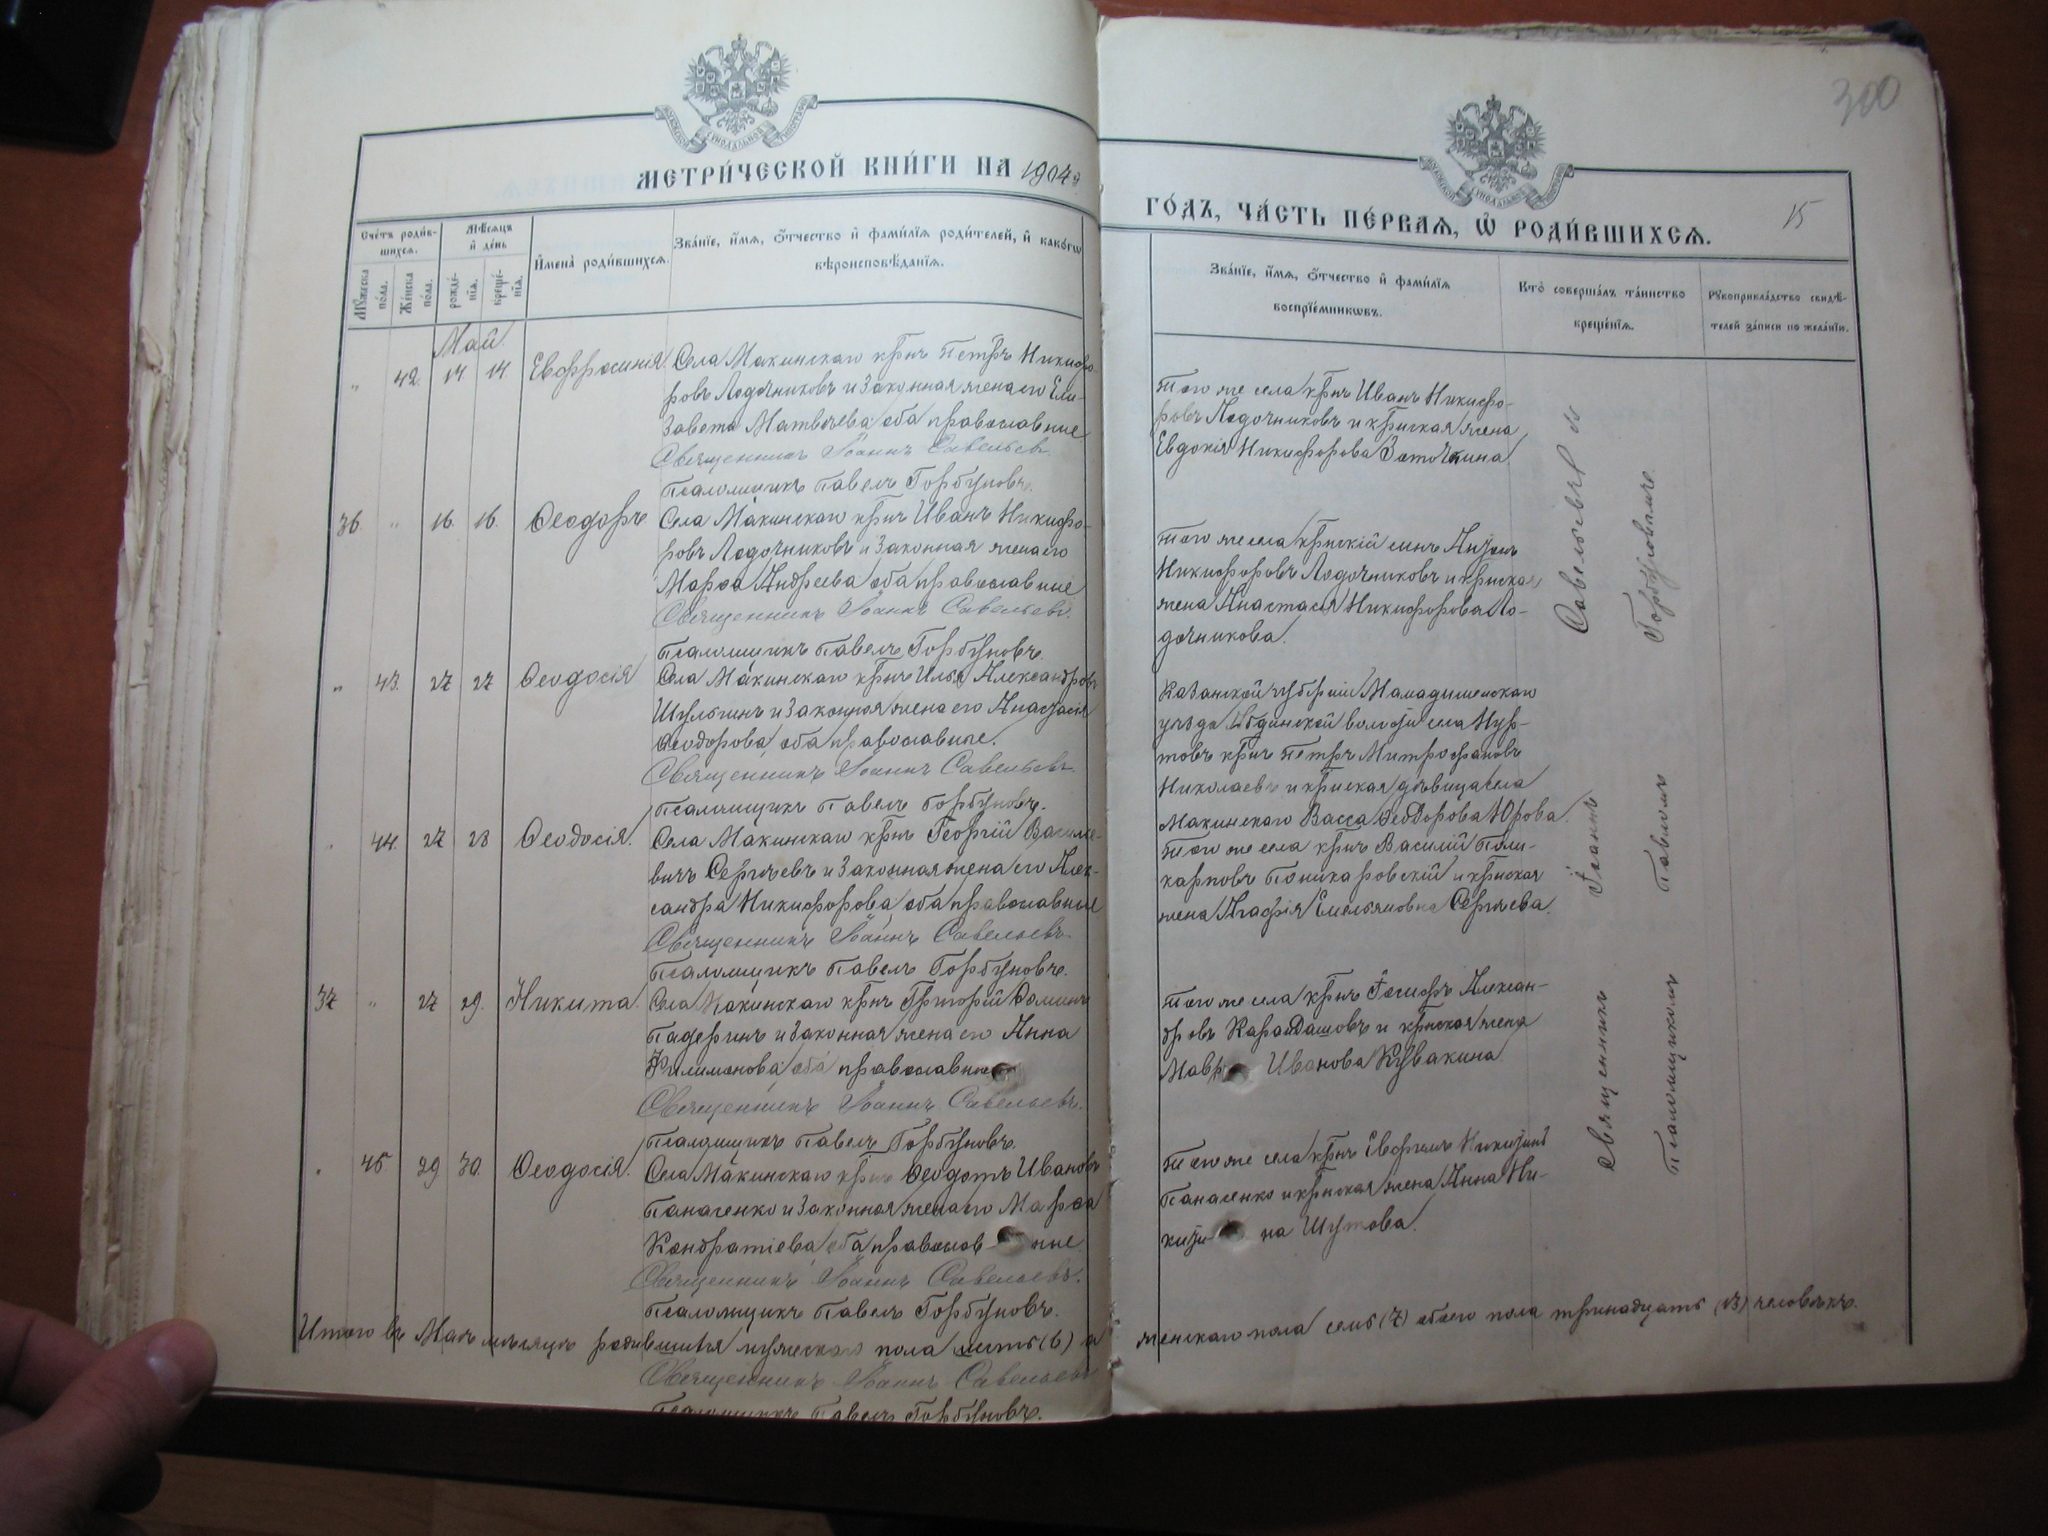 300
МЕТРИ́ЧЕСКОЙ КНИ́ГИ НА 1904 г
ГО́ДЪ, ЧА́СТЬ ПЕ́РВАѦ, Ѡ҆ РОДИ́ВШИХСѦ.
15
Сче́тъ роди́в-
шихсѧ.
Мѣ́сѧцъ
и҆ де́нь
И҆мена̀ роди́вшихсѧ.
Зва́нїе, и҆́мѧ, ѻ҆́тчество и҆ фами́лїѧ роди́телей, и҆ како́гѡ
вѣроисповѣ́данїѧ.
Мꙋ́жеска
по́ла.
Же́нска
по́ла.
рожде́-
нїѧ.
креще́-
нїѧ.
Зва́нїе, и҆́мѧ, ѻ҆́тчество и҆ фами́лїѧ
воспрїе́мникѡвъ.
Кто̀ соверша́лъ та́инство
креще́нїѧ.
Рꙋкоприкла́дство свидѣ́-
телей за́писи по жела́нїю.
Май.
" 42. 14 14. Евфросинія. Села Макинскаго крнъ Петръ Никифо-
ровъ Лодочниковъ и законная жена его Ели-
завета Матвѣева оба православные
Священникъ Іоаннъ Савельевъ.
Псаломщикъ Павелъ Горбуновъ.
того же села крнъ Иванъ Никифо-
ровъ Лодочниковъ и крнская жена
Евдокія Никифорова Заточкина.
36. " 16. 16. Ѳеодоръ Села Макинскаго крнъ Иванъ Никифо-
ровъ Лодочниковъ и законная жена его
Марѳа Андреева оба православные
Священникъ Іоаннъ Савельевъ.
Псаломщикъ Павелъ Горбуновъ.
того же села крнскій сынъ
Никифоровъ Лодочниковъ и крнская
жена Анастасія Никифорова Ло-
дочникова.
" 43. 27 27 Ѳеодосія Села Макинскаго крнъ Илья Александровъ
Шульгинъ и законная жена его Анастасія
Ѳеодорова оба православные.
Священникъ Іоаннъ Савельевъ.
Псаломщикъ Павелъ Горбуновъ.
Казанской губерніи Мамадышскаго
уѣзда волости села
крнъ Петръ Митрофановъ
Николаевъ и крнская дѣвица села
Макинскаго Васса Ѳеодорова Юрова.
" 44. 27 28 Ѳеодосія. Села Макинскаго крнъ Георгій Василье-
вичъ Сергѣевъ и законная жена его Алек-
сандра Никифорова оба православные
Священникъ Іоаннъ Савельевъ.
Псаломщикъ Павелъ Горбуновъ.
того же села крнъ Василій Поли-
карповъ Поникаровскій и крнская
жена Агафія Емельяновна Сергѣева.
37 " 27 29. Никита. Села Макинскаго крнъ Григорій Ѳоминъ
Падеринъ и законная жена его Анна
Филимонова оба православные
Священникъ Іоаннъ Савельевъ.
Псаломщикъ Павелъ Горбуновъ.
того же села крнъ Іосифъ Алексан-
дровъ Карандашовъ и крнская жена
Мавра Иванова Кувакина.
" 45 29 30. Ѳеодосія. Села Макинскаго крнъ Ѳеодотъ Ивановъ
Панасенко и законная жена его Марѳа
Кондратіева оба православные
Священникъ Іоаннъ Савельевъ.
Псаломщикъ Павелъ Горбуновъ.
того же села крнъ Евфимъ Никитинъ
Панасенко и крнская жена Анна Ни-
кити на Шутова.
Священникъ Іоаннъ Савельевъ съ
Псаломщикомъ Павломъ Горбуновымъ.
Итого въ Маѣ мѣсяцѣ родившихся мужескаго пола шесть (6) а женскаго пола семь (7) обоего пола тринадцать (13) человѣкъ.
Священникъ Іоаннъ Савельевъ
Псаломщикъ Павелъ Горбуновъ.